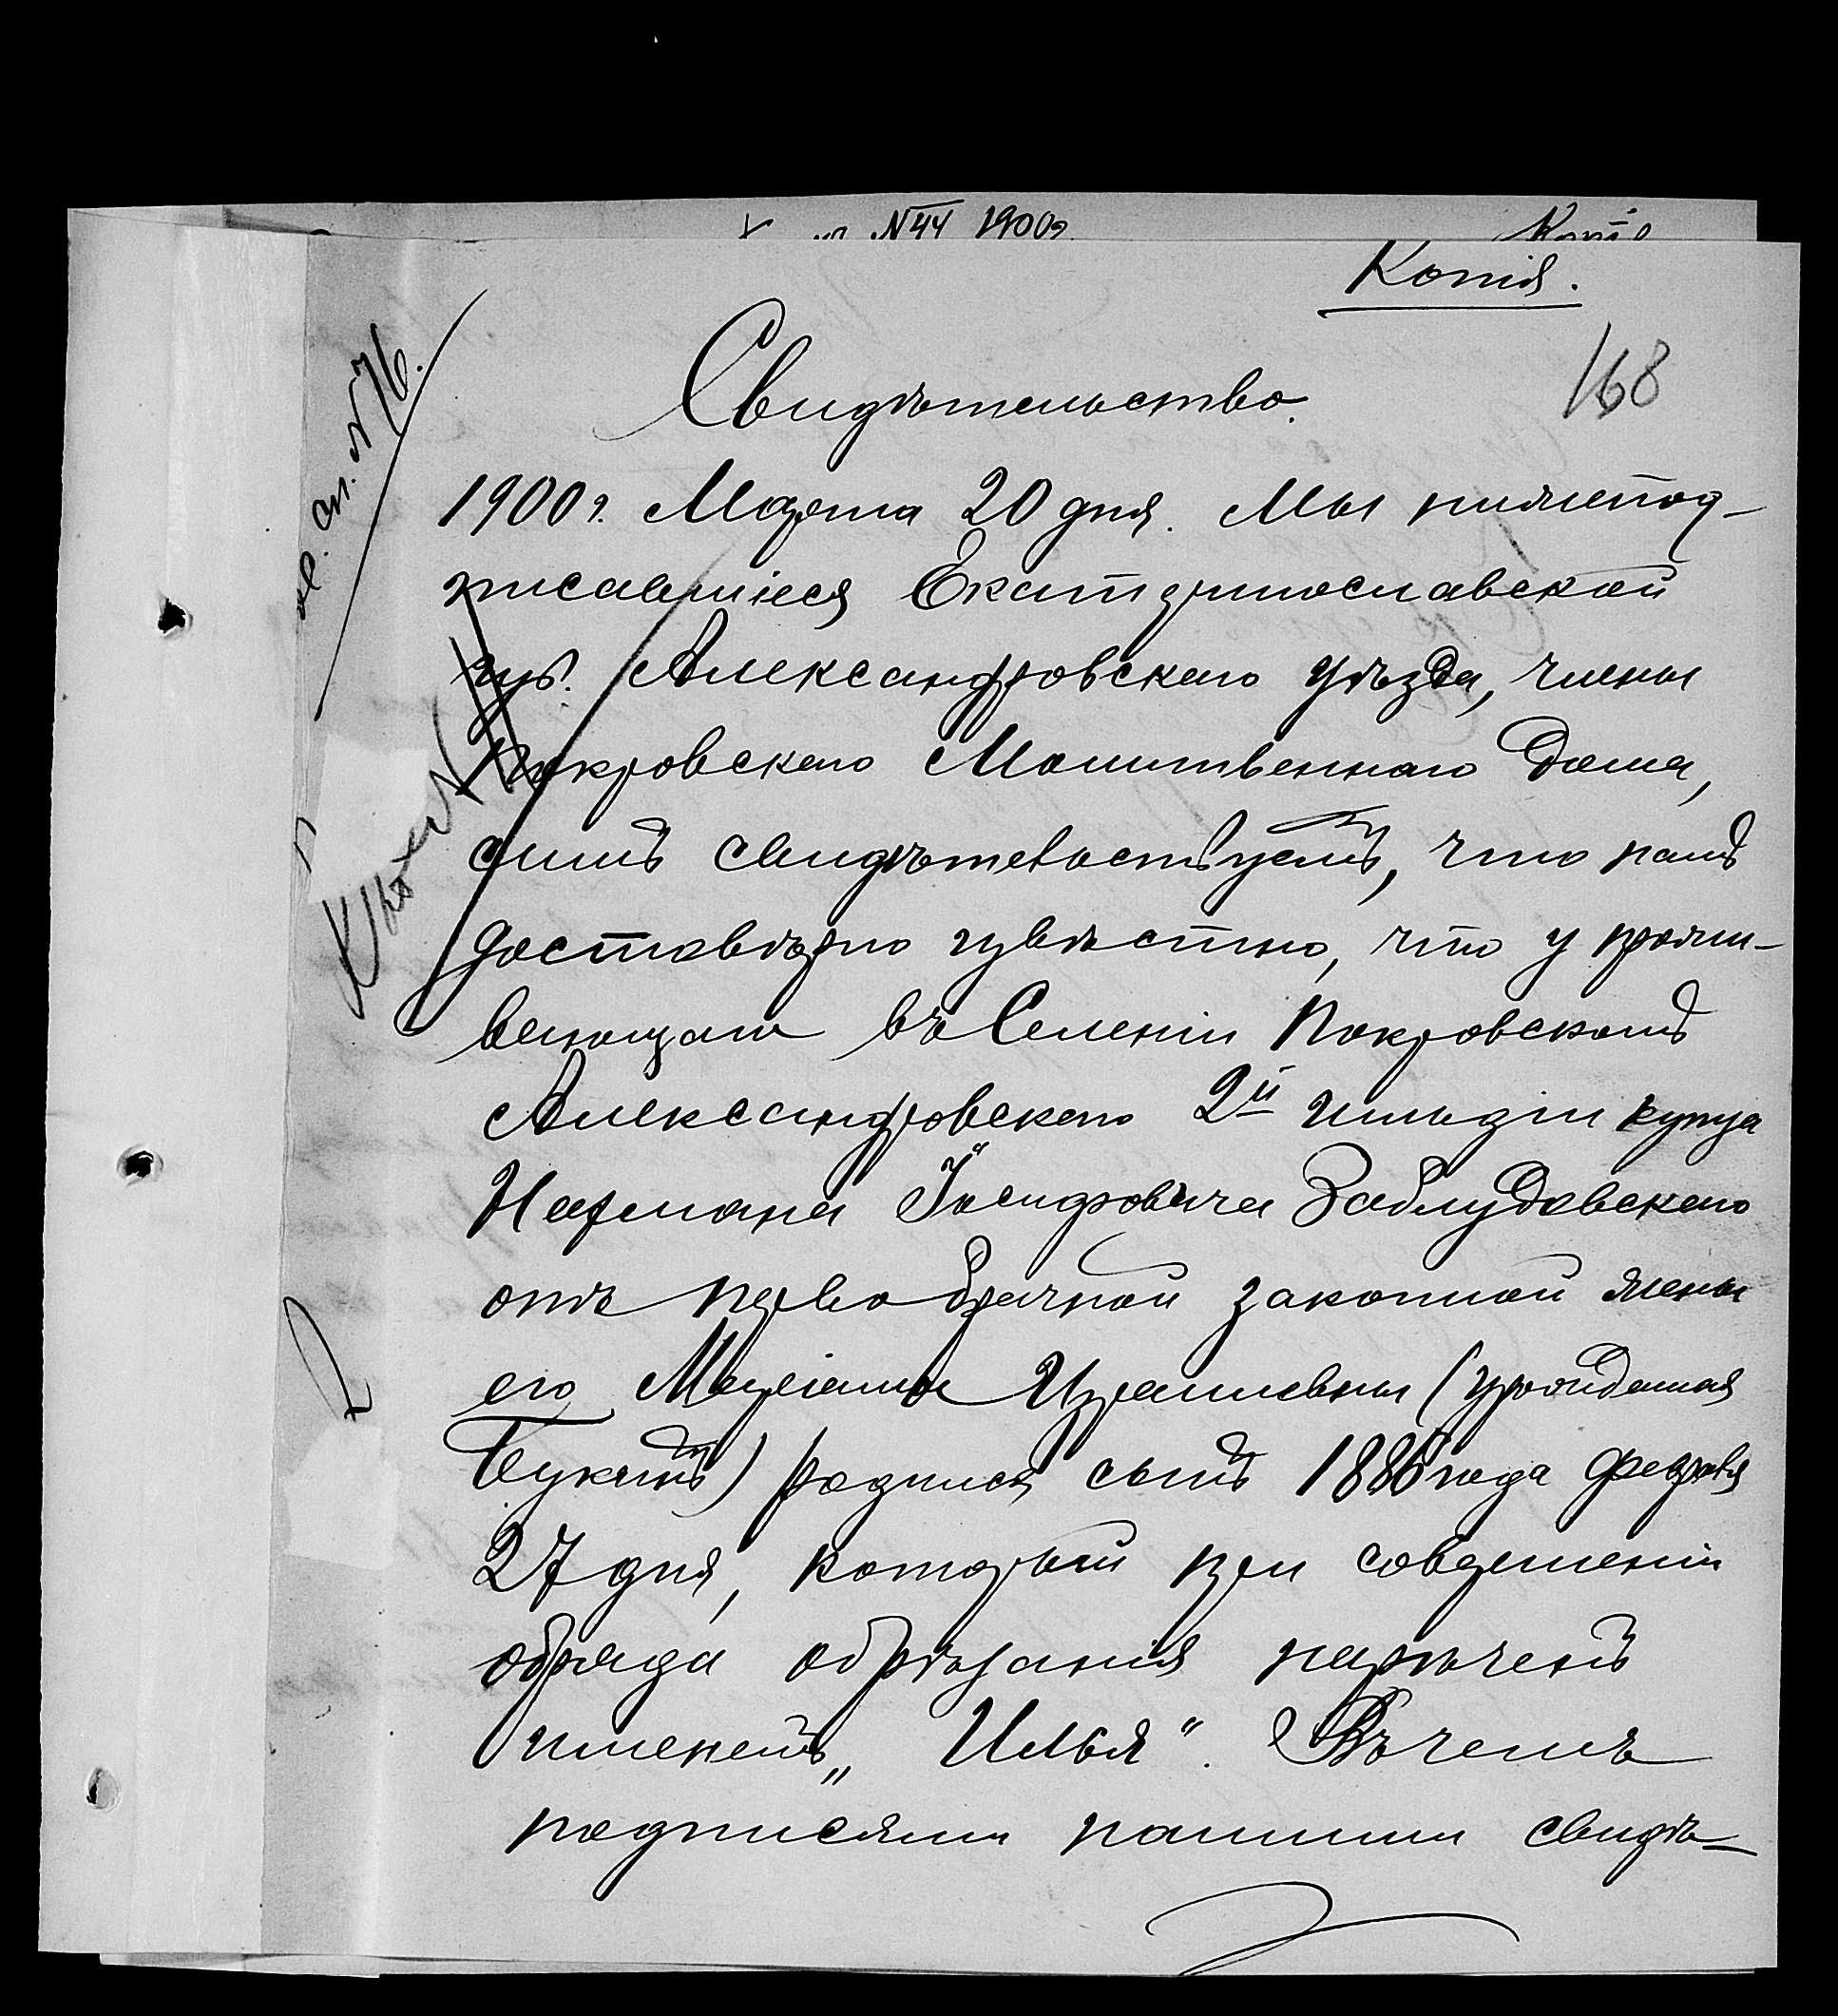 № 44 1900г.
Копія
Копія.
168
Свидѣтельство.
сп. № 76.
1900 г. Марта 20 дня. Мы нижепод-
писавшіеся Екатеринославской
губ. Александровскаго уѣзда, члены
Покровскаго Молитвеннаго Дома,
симъ свидѣтельствуемъ, что намъ
достовѣрно извѣстно, что у прожи-
вающаго въ Селеніи Покровскомъ
Александровскаго 2й гильдіи купца
Нахмана Іосифовича Заблудовскаго
отъ первобрачной законной жены
его Маріамы Израилевны (урожденная
Букатъ) родился сынъ 1886 года Февраля
27 дня, который при совершеніи
обряда обрѣзанія нареченъ
именемъ „Илья“. Въ чемъ
подписями нашими свидѣ-